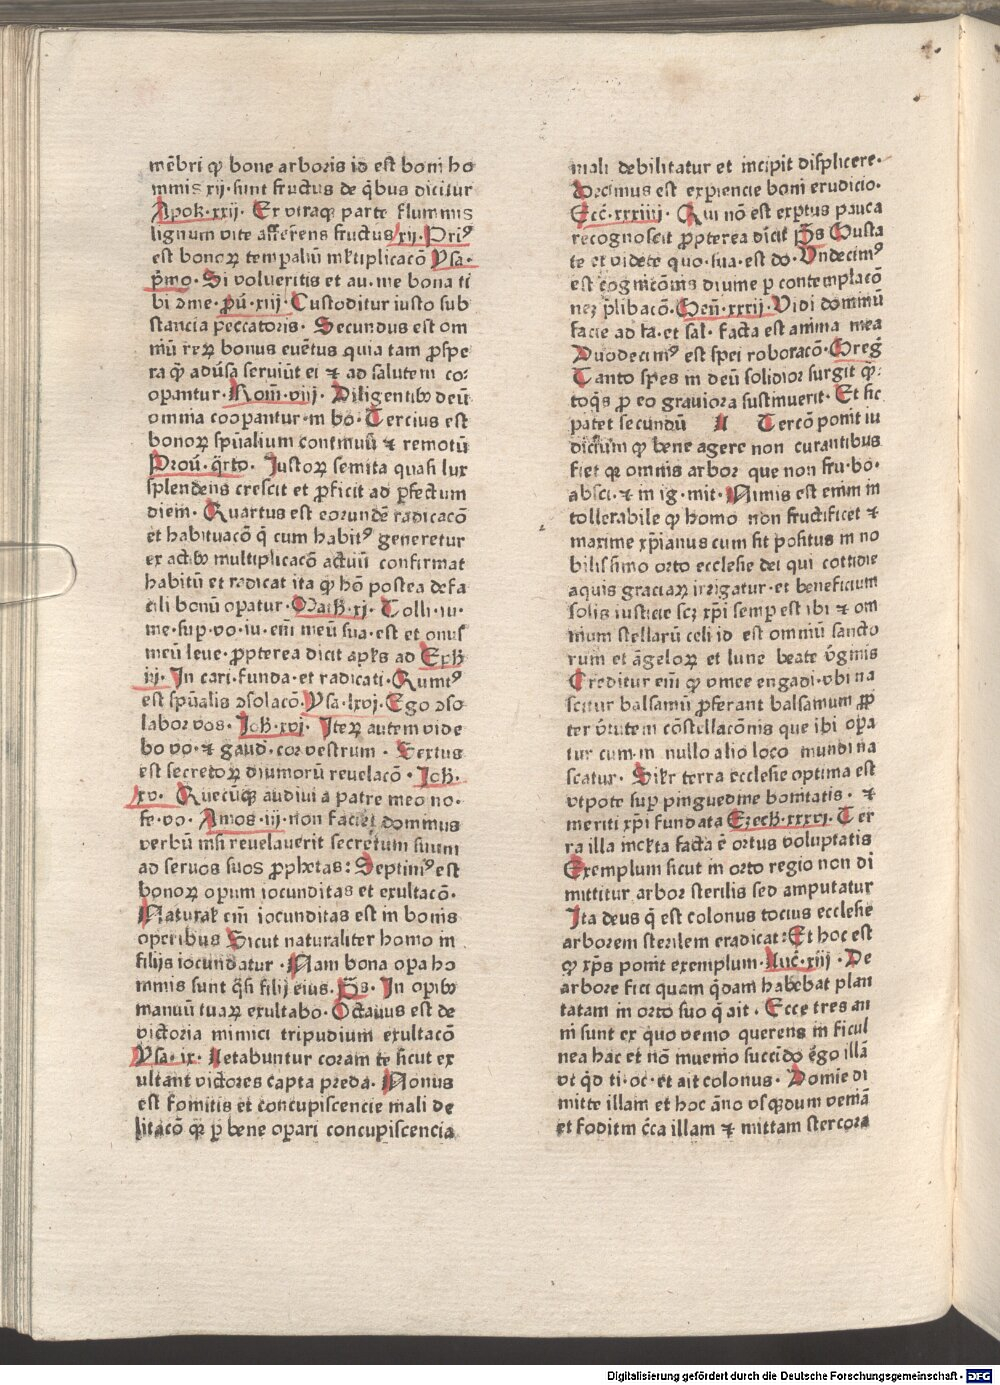 mēbri qꝫ bone arboris id est boni ho
minis xij·sunt fructus de q̄bus dicitur
Apok·xxij· Ex vtraqꝫ parte fluminis
lignum vite afferens fructus xij·Priꝰ
est bonoꝝ tempaliū mltiplicacō Ysa·
p̄mo·Si volueritis et au·me bona ti
bi ꝯme·p̄u·xiij·Custoditur iusto sub
stancia peccatoris· Secundus est om
niū reꝝ bonus euētus quia tam ꝓspe
ra qꝫ aduſa seruiūt ei ⁊ ad salutem co·
opantur·Rom̄·viij·Diligentibꝰ deū
omnia coopantur·in bo·Tercius est
bonoꝝ spūalium continuū ⁊ remotū
Prou̅·q̄rto· Justoꝝ semita quasi lux
splendens crescit et ꝓficit ad ꝑfectum
diem· Quartus est eorundē radicacō
et habituacō q̄ cum habitꝰ generetur
ex actibꝰ multiplicacō actuū confirmat
habitū et radicat ita qꝫ hō postea de fa
cili bonū opatur·Math·xj·Tolli·iu·
me·sup·vo·iu·em̄ meū sua·est et onus
meū leue·ꝓpterea dicit apls ad Eph
iij·In cari·funda·et radicati·Quintꝰ
est spūalis ꝯsolacō·Ysa·lxvj·Ego ꝯso
labor vos·Joh·xvj· Iteꝝ autem vide
bo vo·⁊ gaud·cor vestrum· Sextus
est secretoꝝ diuinorū reuelacō· Joh·
xv· Quecūqꝫ audiui a patre meo no·
fe·vo·Amos·iij·non faciet dominus
verbū nisi reuelauerit secretum suum
ad seruos suos ꝓphetas: Septimꝰ est
bonoꝝ opum iocunditas et exultacō·
Natural em̄ iocunditas est in bonis
operibus Sicut naturaliter homo in
filijs iocundatur·Nam bona opa ho
minis sunt q̄si filij eius·Ps·In opibꝰ
manuū tuaꝝ exultabo·Octauus est de
victoria inimici tripudium exultacō
Ysa·ix·Letabuntur coram te sicut ex
ultant victores capta preda·Nonus
est fomitis et concupiscencie mali de
litacō qꝫ ꝑ bene opari concupiscencia
mali debilitatur et incipit displicere·
Decimus est expiencie boni erudicio·
Ecc̄·xxxiiij· Qui nō est exptus pauca
recognoscit ꝓpterea dicit Ps Gusta
te et videte quo·sua·est do·Vndecimꝰ
est cognicōnis diuine ꝑ contemplacō
neꝫ p̄libacō·Gen̄·xxxij·Vidi dominū
facie ad fa·et sal·facta est anima mea
Duodecimꝰ est spei roboracō·Greg̅
Tanto spes in deū solidior surgit q̄·
toqꝫ ꝑ eo grauiora sustinuerit·Et sic
patet secundū Tercō ponit iu
dicium qꝫ bene agere non curantibus
fiet qꝫ omnis arbor que non fru·bo·
absci·⁊ in ig·mit·Nimis est enim in
tollerabile qꝫ homo non fructificet ⁊
maxime xp̄ianus cum sit positus in no
bilissimo orto ecclesie dei qui cottidie
aquis graciaꝝ irrigatur·et beneficium
solis iusticie scꝫ xp̄i semp est ibi ⁊ om
nium stellarū celi id est omniū sancto
rum et āgeloꝝ et lune beate v̄ginis
Creditur em̄ qꝫ vinee engadi·vbi na
scitur balsamū ꝓferant balsamum ꝓp
ter v̄tutem cōstellacōnis que ibi opa
tur cum in nullo alio loco mundi na
scatur· Silr terra ecclesie optima est
vtpote sup pinguedine bonitatis· ⁊
meriti xp̄i fundata Ezech·xxxvj·Ter
ra illa inclta facta ē ortus voluptatis
Exemplum sicut in orto regio non di
mittitur arbor sterilis sed amputatur
Ita deus q̄ est colonus tocius ecclesie
arborem sterilem eradicat:Et hoc est
qꝫ xp̄s ponit exemplum·Luc̄·xiij·De
arbore fici quam q̄dam habebat plan
tatam in orto suo q̄ ait· Ecce tres an
ni sunt ex quo venio querens in ficul
nea hac et nō inuenio succido ergo illā
vt q̄d ti·oc·et ait colonus· Domie di
mitte illam et hoc āno vsqꝫdum veniā
et foditm c̄ca illam ⁊ mittam stercora
Digitalisierung gefördert durch die Deutsche Forschungsgemeinschaft - DFG